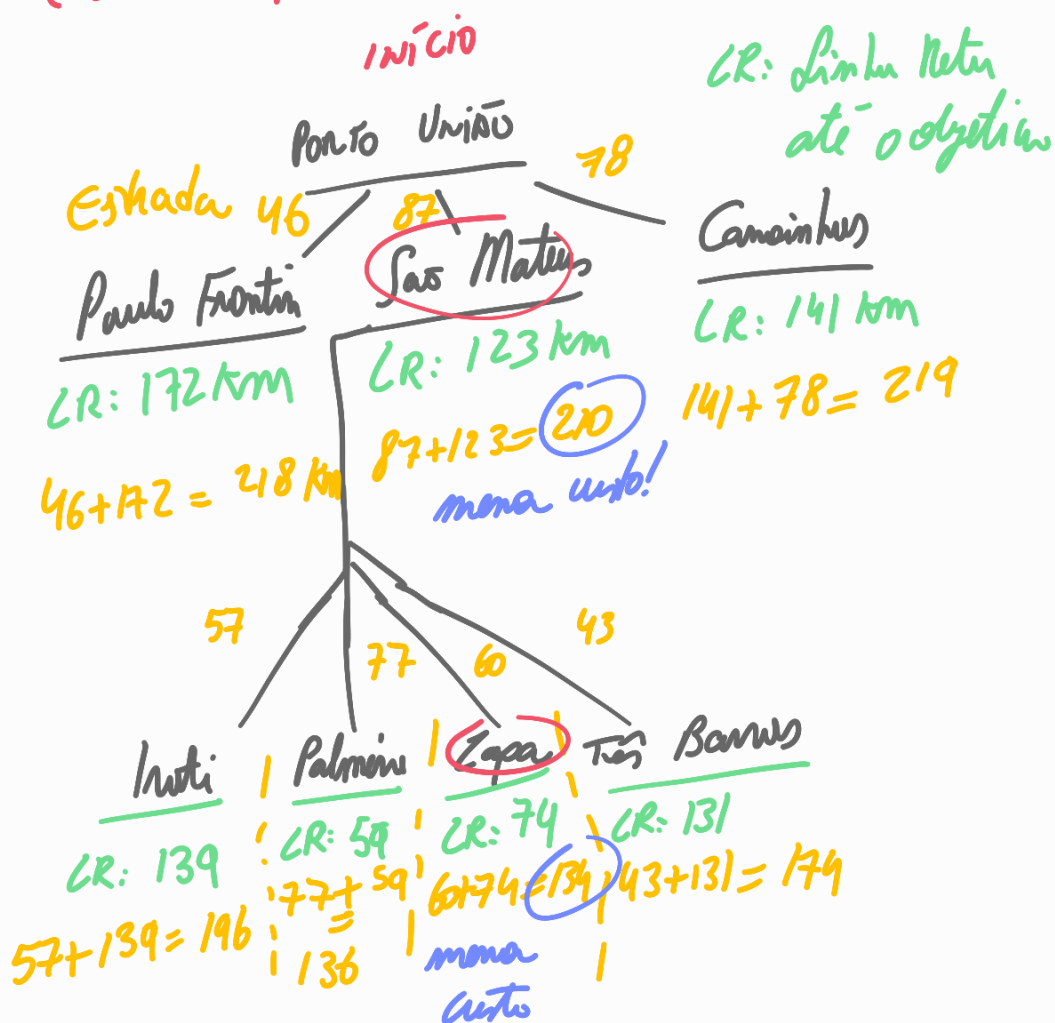 INÍCIO
LR: Linha Reta
até o objetivo
PORTO UNIÃO
Estrada 46 87 78
Paulo Frontin
São Mateus
Canoinhas
LR: 172 Km
LR: 123 Km
LR: 141 Km
46+172 = 218 Km
87+123=210
menor custo!
141+78= 219
57 77 60 43
Irati
Palmeira
Lapa
Três Barras
LR: 139
LR: 59
LR: 74
LR: 131
57+139=196
77+59
=
136
60+74=134
menor
custo
43+131=174